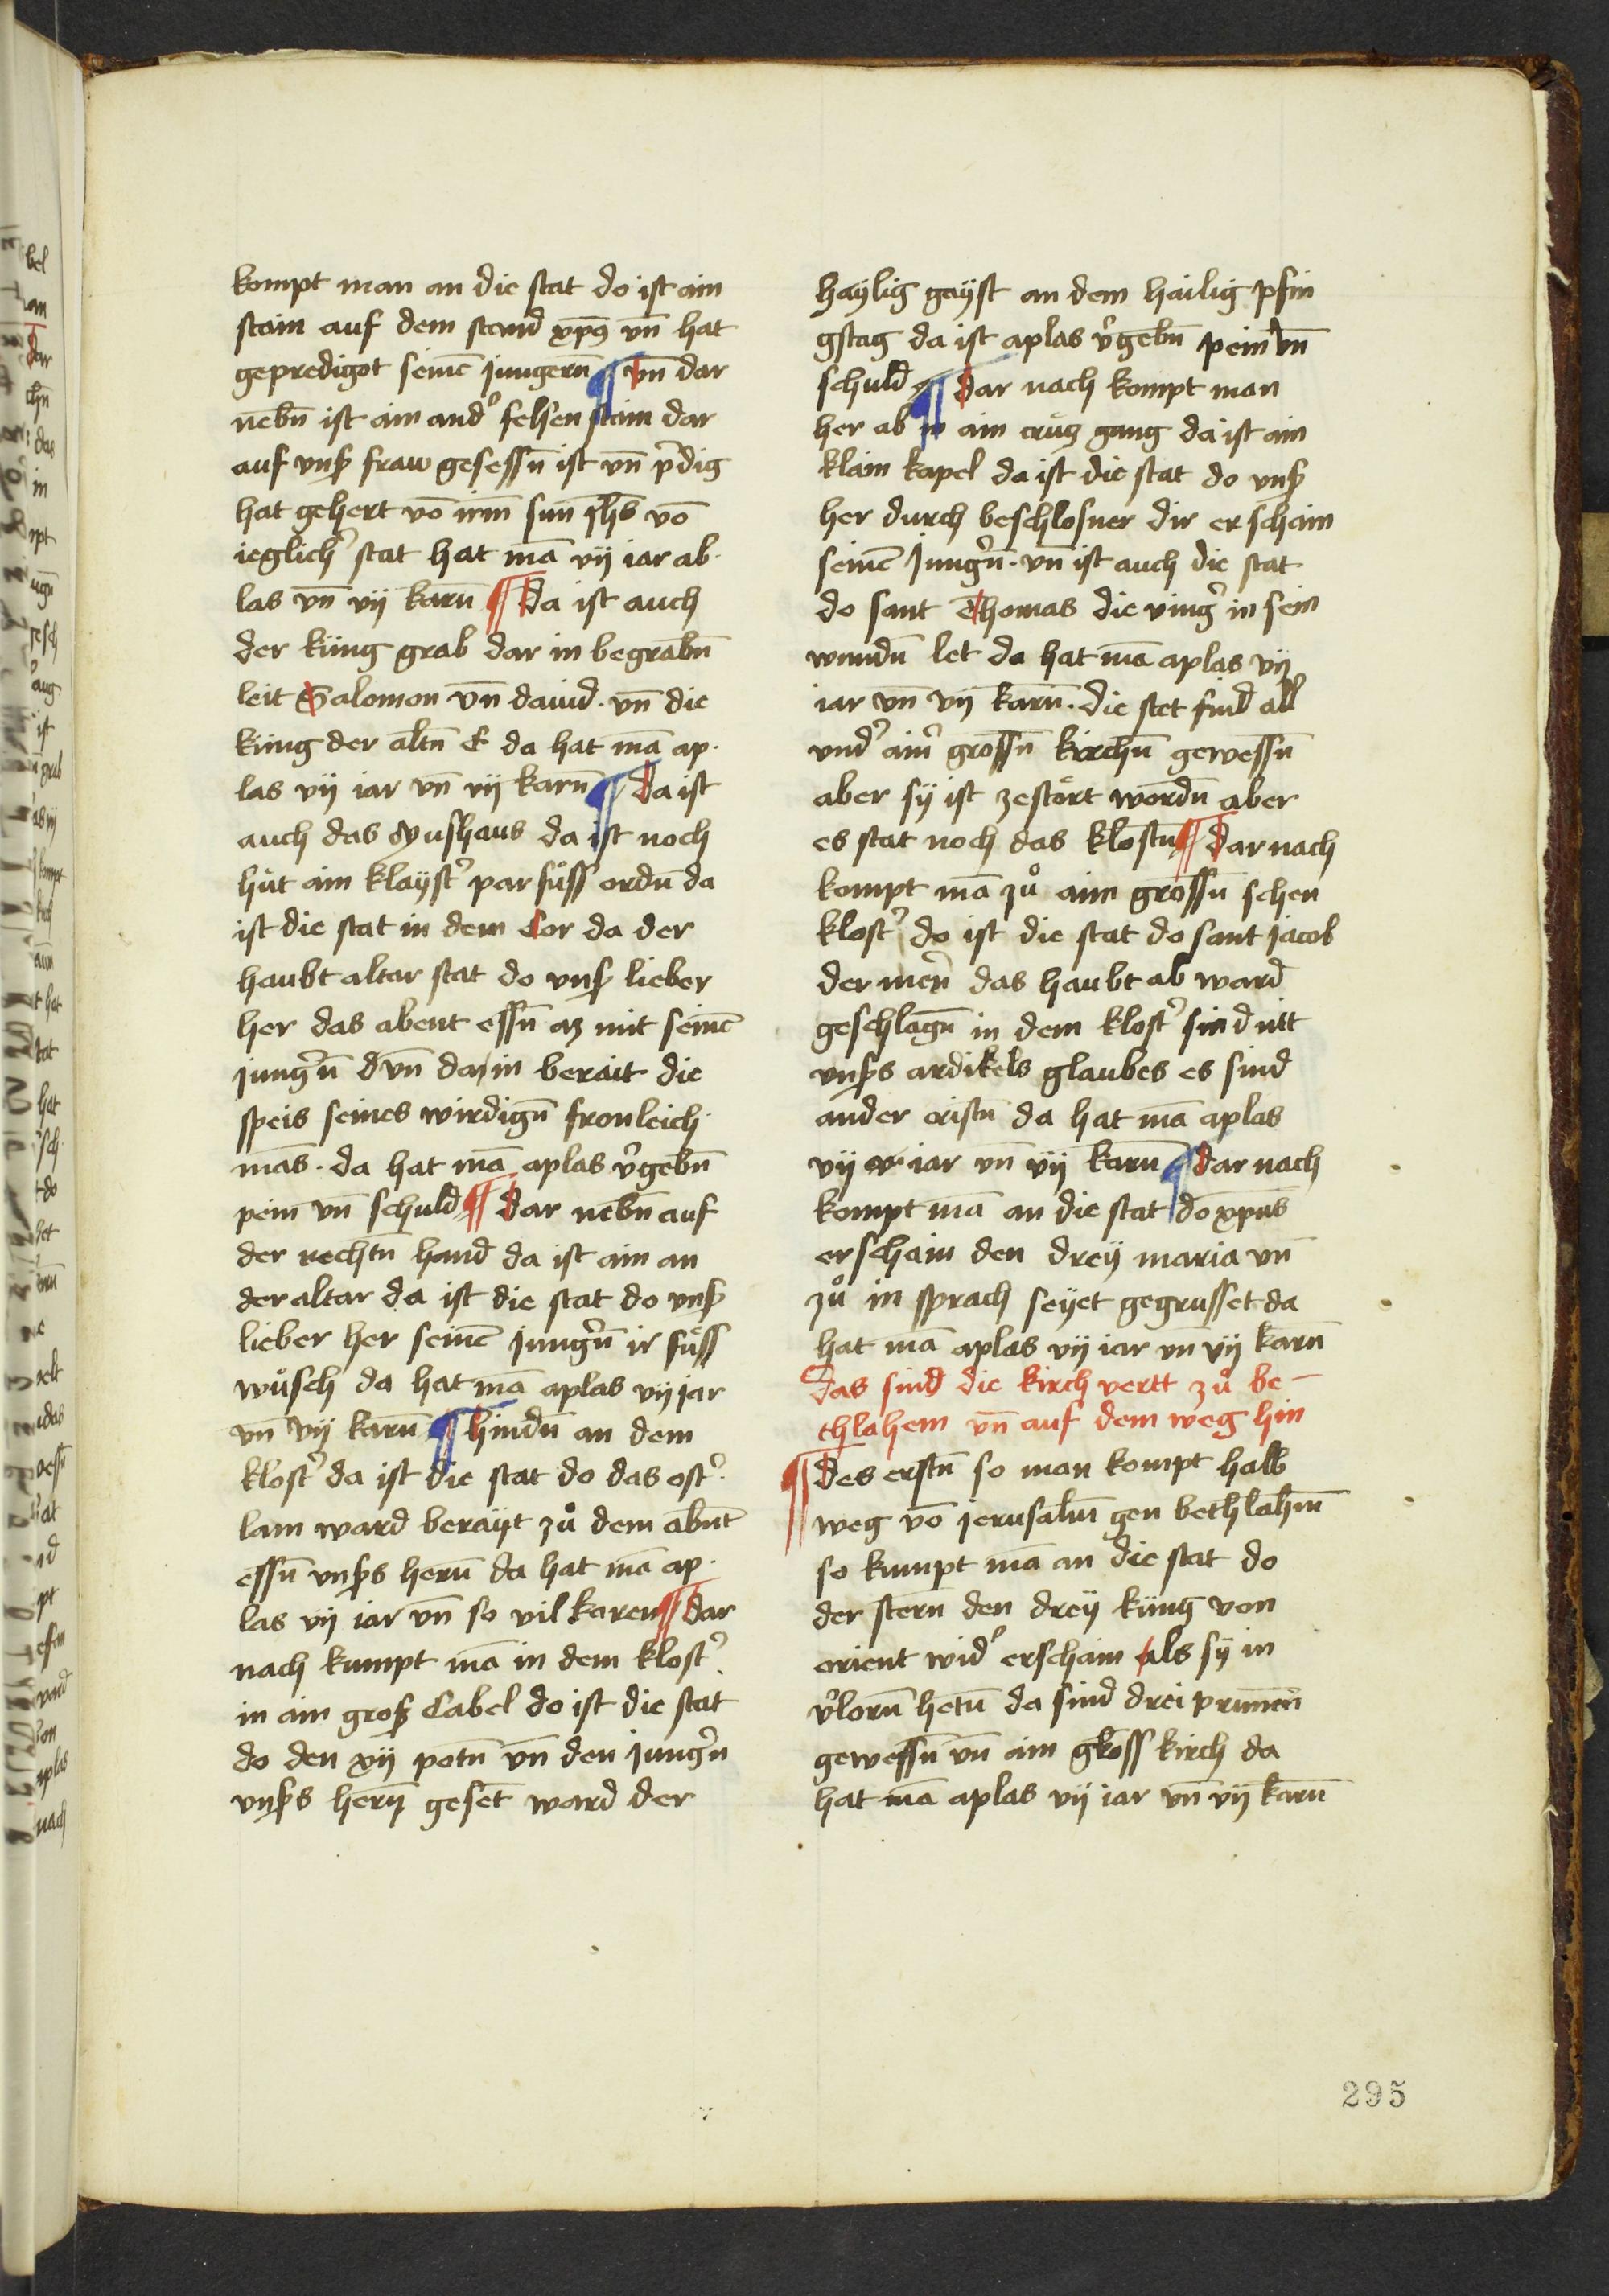 kompt man an die stat do ist ain
stain auf dem stand xp̄s vn̄ hat
gepredigot seinē jungern̄ ¶ vn̄ dar
nebn̄ ist ain and᾽ felsen stain dar
auf vnß fraw gesessn̄ ist vn̄ p̄dig
hat gehert vō irm̄ sun̄ jhs̄ vō
ieglich᾽ stat hat mā vij iar ab
las vn̄ vij karn̄ ¶ da ist auch
der küng grab dar in begrabn̄
leit Salomon vn̄ dauid · vn̄ die
küng der altn̄ E da hat mā ap
las vij iar vn̄ vij karn̄ ¶ Da ist
auch das da ist noch
hüt ain klayst᾽ parfüss ordn̄ da
ist die stat in dem Cor da der
haubt altar stat do vnß lieber
her das abent essn̄ az mit seinē
jung᾽n̄ vn̄ da in berait die
speis seines wirdign̄ fronleich
mas · da hat mā aplas v᾽gebn̄
pein vn̄ schuld ¶ Dar nebn̄ auf
der rechtn̄ hand da ist ain an
der altar da ist die stat do vnß
lieber her seinē jung᾽n̄ ir füss
wůsch da hat mā aplas vij jar
vn̄ vij karn̄ ¶ hindn̄ an dem
klost᾽ da ist die stat do das ost᾽
lam ward berayt zů dem abn̄t
essn̄ vnßs hern̄ da hat mā ap
las vij iar vn̄ so vil karen ¶ dar
nach kumpt mā in dem klost᾽
in ain groß Cabel do ist die stat
do den xij potn̄ vn̄ den jung᾽n
vnßs hern̄ gesēt ward der
haylig gayst an dem hailig pfin
gstag da ist aplas v᾽gebn̄ pein vn̄
schuld ¶ Dar nach kompt man
her ab in ain crüz gang da ist ain
klain kapel da ist die stat do vnß
her durch beschlosner dir erschain
seinē jung᾽n̄ · vn̄ ist auch die stat
do sant Thomas die ving᾽ in sein
wundn̄ let da hat mā aplas vij
iar vn̄ vij karn̄ · die stet sind all
vnd᾽ ain᾽ grossn̄ kirchn̄ gewessn̄
aber sy ist zestört wordn̄ aber
es stat noch das klostn̄ ¶ Dar nach
kompt mā zů aim grossn̄ schen
klost᾽ do ist die stat do sant jacob
der mer᾽ das haubt ab ward
geschlagn̄ in dem klost᾽ sind nit
vnßs ardikels glaubes es sind
ander cristn̄ da hat mā aplas
vij iar vn̄ vij karn̄ ¶ Dar nach
kompt mā an die stat do xp̄us
erschain den drey maria vn̄
zů in sprach seyet gegrusset da
hat mā aplas vij iar vn̄ vij karn̄
Das sind die kirch vertt zů be–
thlahem vn̄ auf dem weg hin
¶ Des erstn̄ so man kompt halb
weg vō jerusalm̄ gen bethlahm̄
so kumpt mā an die stat do
der stern̄ den drey küng von
orient wid᾽ erschain als sy in
v᾽lorn̄ hetn̄ da sind drei prunnen
gewessn̄ vn̄ ain gross kirch da
hat mā aplas vij iar vn̄ vij karn̄
295